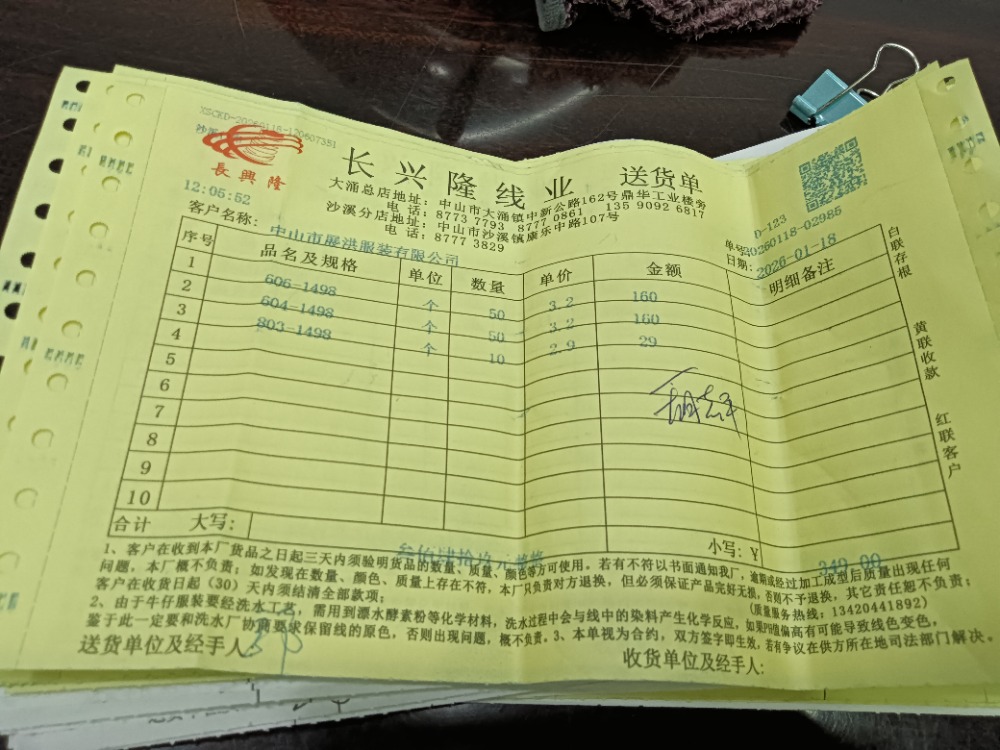 XSCKD-20260118-120607351
沙溪
長興隆
长兴隆线业 送货单
大涌总店地址：中山市大涌镇中新公路162号鼎华工业楼旁
电话：8773 7793 8777 0861 135 9092 6817
沙溪分店地址：中山市沙溪镇康乐中路107号
电话：8777 3829
12:05:52
D-123
单号：20260118-02985
客户名称：中山市展洪服装有限公司
日期：2026-01-18
序号 品名及规格 单位 数量 单价 金额 明细备注
1 606-1498 个 50 3.2 160
2 604-1498 个 50 3.2 160
3 803-1498 个 10 2.9 29
4
5
6
7
8
9
10
合计 大写： 叁佰肆拾玖元整 小写：¥ 349.00
白联存根
黄联收款
红联客户
1、客户在收到本厂货品之日起三天内须验明货品的数量、质量、颜色等方可使用。若有不符以书面通知我厂，逾期或经过加工成型后质量出现任何
问题，本厂概不负责；如发现在数量、颜色、质量上存在不符，本厂只负责对方退换，但必须保证产品完好无损，否则不予退换，其它责任恕不负责；
客户在收货日起（30）天内须结清全部款项；
（质量服务热线：13420441892）
2、由于牛仔服装要经洗水工艺，需用到漂水酵素粉等化学材料，洗水过程中会与线中的染料产生化学反应，如果PH值偏高有可能导致线色变色，
鉴于此一定要和洗水厂协商要求保留线的原色，否则出现问题，概不负责。3、本单视为合约，双方签字即生效，若有争议在供方所在地司法部门解决。
送货单位及经手人
收货单位及经手人：